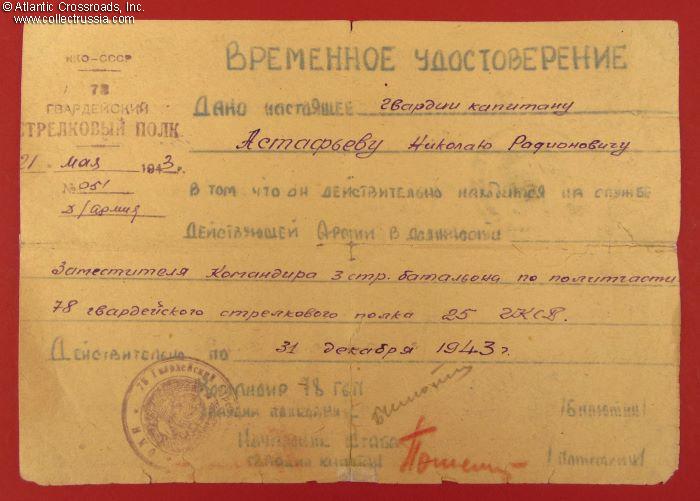 © Atlantic Crossroads, Inc.
www.collectrussia.com
НКО-СССР
78
ГВАРДЕЙСКИЙ
СТРЕЛКОВЫЙ ПОЛК
21 мая 1943 г.
№ 051
д/армия
ВРЕМЕННОЕ УДОСТОВЕРЕНИЕ
Дано настоящее гвардии капитану
Астафьеву Николаю Радионовичу
в том что он действительно находится на службе
Действующей Армии в должности
Заместителя Командира 3 стр. батальона по политчасти
78 гвардейского стрелкового полка 25 ГКСД.
Действительно по 31 декабря 1943 г.
Командир 78 ГСП
гвардии полковник
/Билютин/
Начальник штаба
гвардии капитан